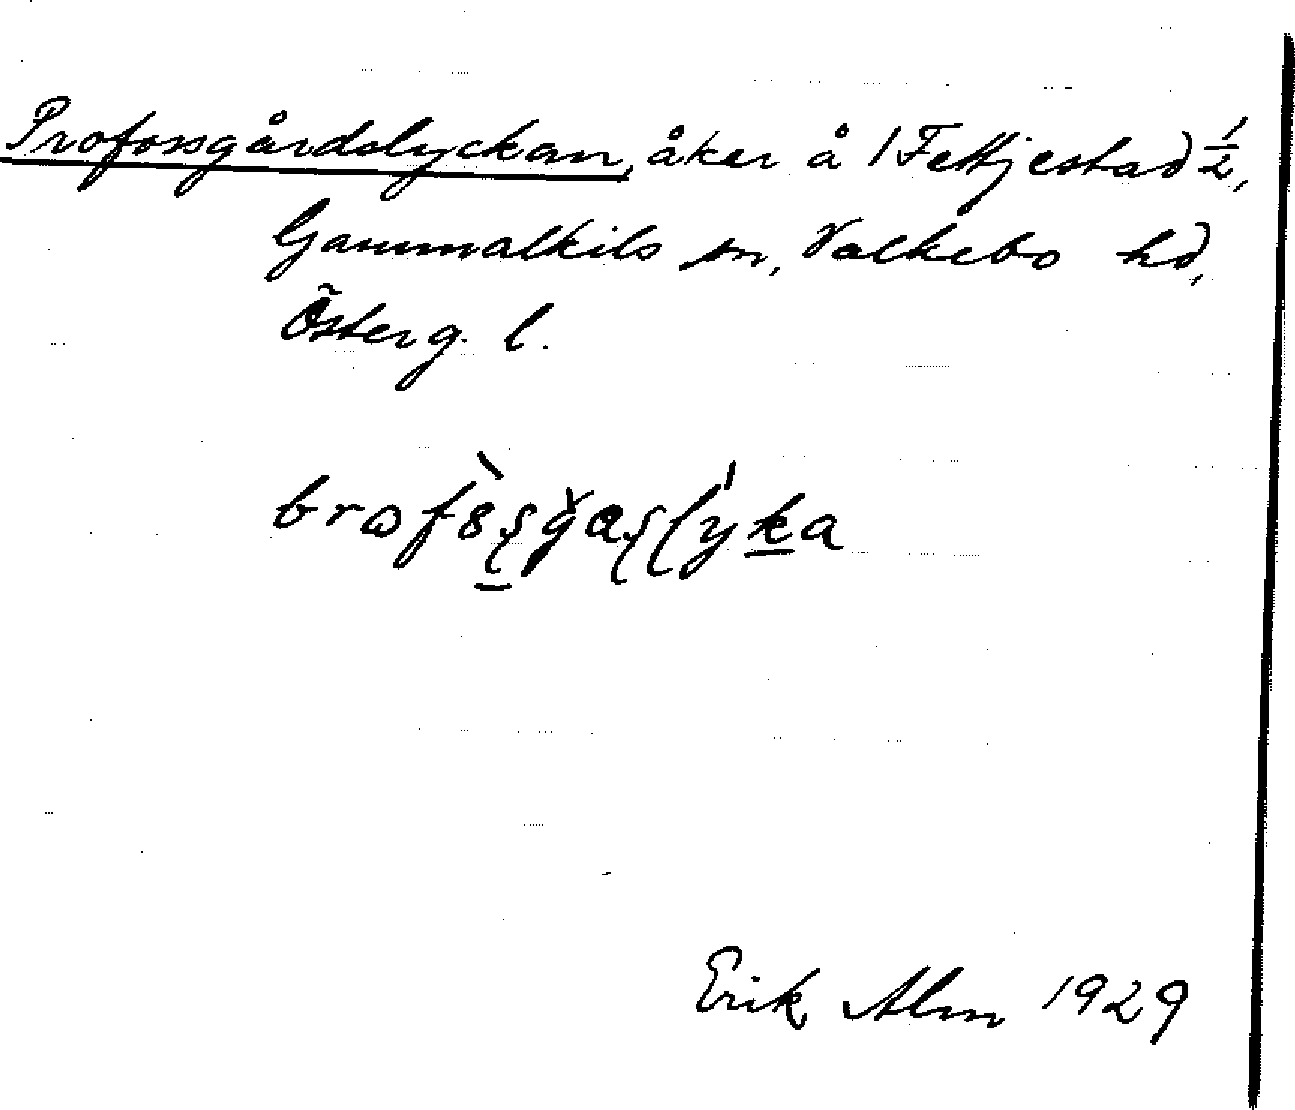 Profossgårdslyckan, åker å 1 Fettjestad 1/2,
Gammalkils sn, Valkebo hd,
Österg. l.
Erik Alm 1929